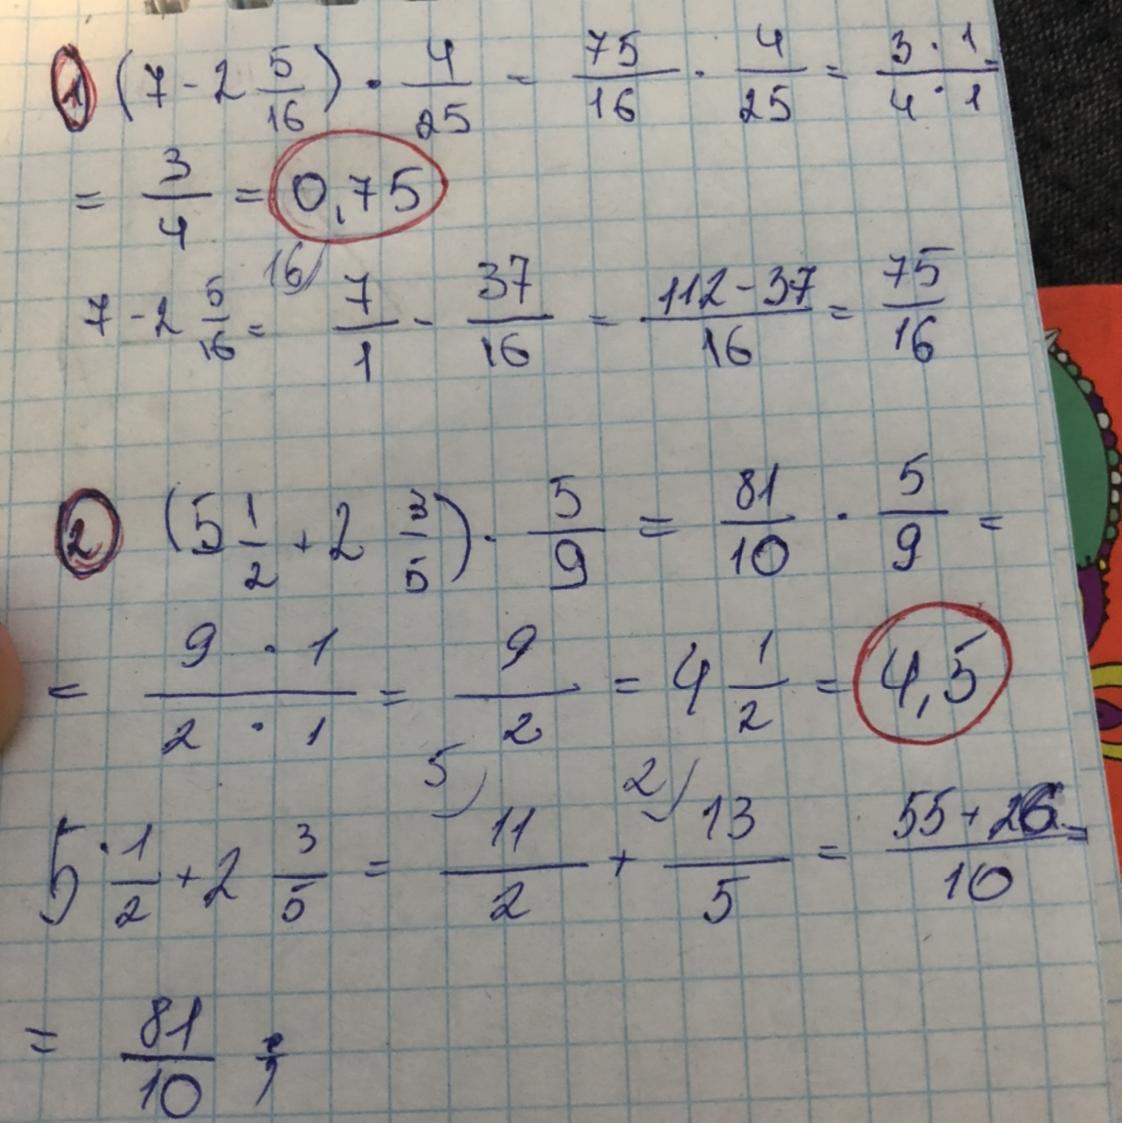 1) (7 - 2 5/16) · 4/25 = 75/16 · 4/25 = 3·1/4·1
= 3/4 = 0,75
7 - 2 5/16 = 16) 7/1 - 37/16 = 112-37/16 = 75/16
2 (5 1/2 + 2 3/5) · 5/9 = 81/10 · 5/9 =
= 9 · 1/2 · 1 = 9/2 = 4 1/2 = 4,5
5 1/2 + 2 3/5 = 5) 11/2 + 2) 13/5 = 55+26/10 =
= 81/10 ;